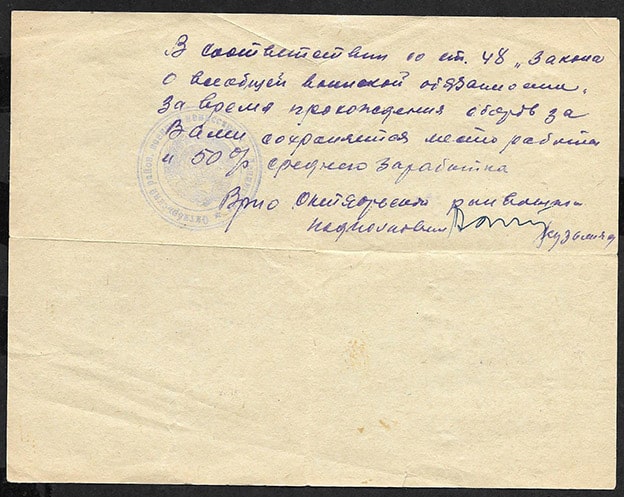 В соответствии со ст. 48 „Закона
О всеобщей воинской обязанности,
За время прохождения сборов за
Вами сохраняется место работы
и 50% среднего заработка
Врио Октябрьского райвоенкома
подполковник
Октябрьский район